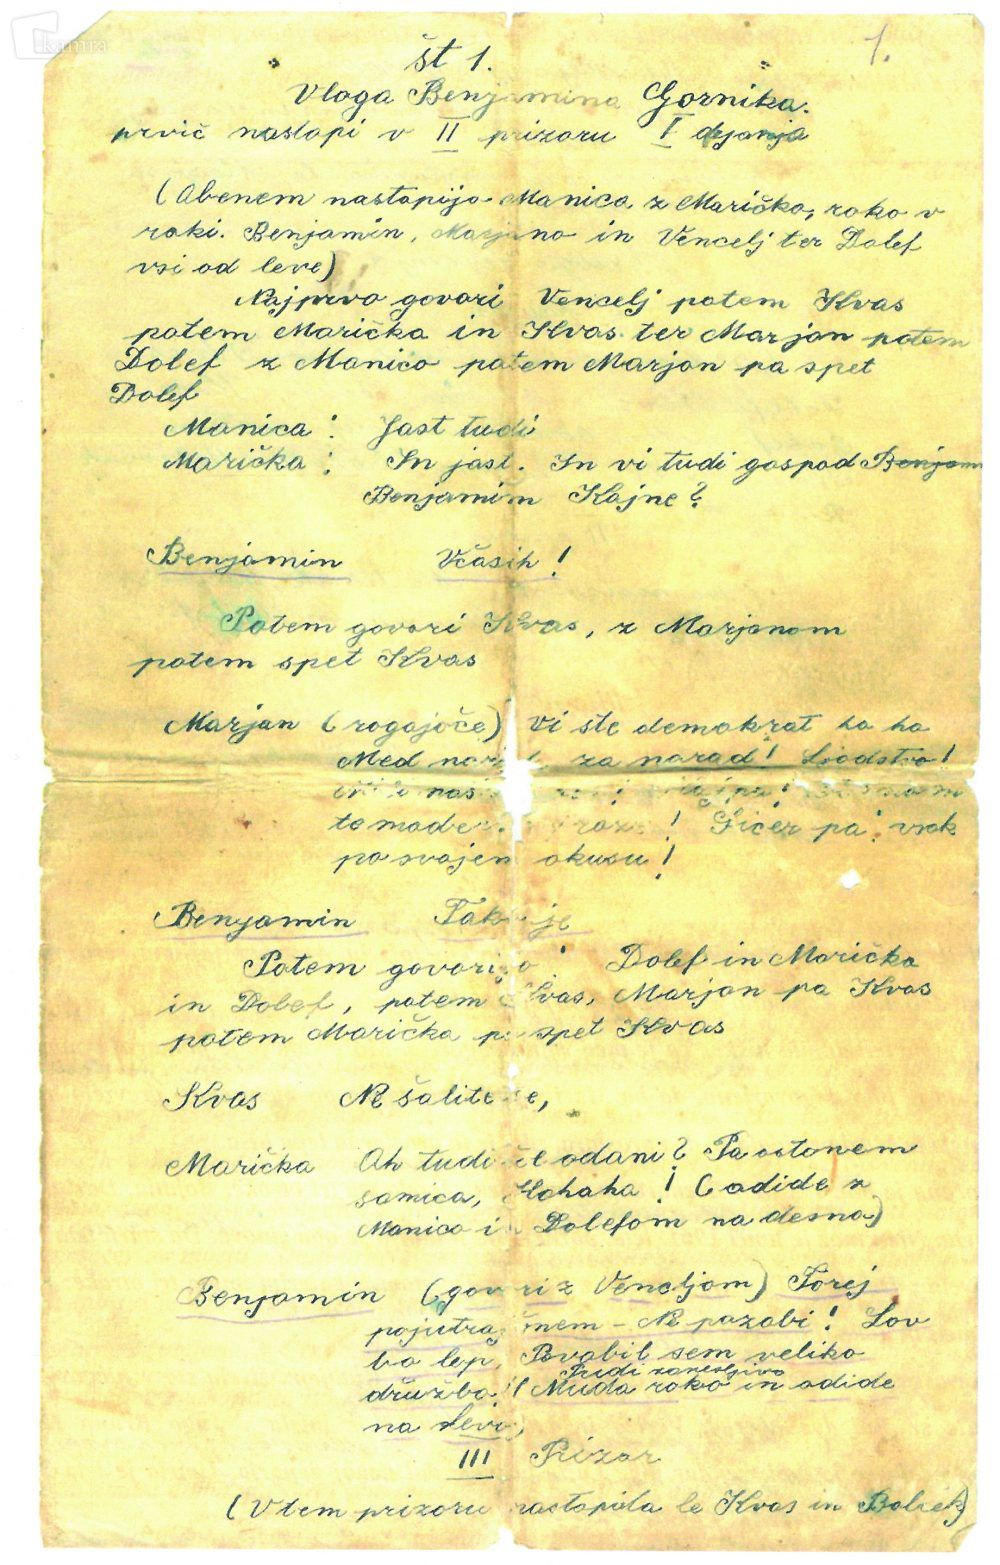 kamra
1.
št 1.
Vloga Benjamina Gornika.
prvič nastopi v II prizoru I dejanja
(Obenem nastopijo Manica z Maričko, roko v
roki. Benjamin, Marjano in Vencelj ter Dolef
vsi od leve)
Najprvo govori Vencelj potem Kvas
potem Marička in Kvas ter Marjan potem
Dolef z Manico potem Marjan pa spet
Dolef
Manica: Jast tudi
Marička: In jast. In vi tudi gospod Benjam
Benjamin Kajne?
Benjamin Včasih!
Potem govori Kvas, z Marjanom
potem spet Kvas
Marjan (rogajoče) Vi ste demokrat ha ha
Med za narod! Ljudstvo!
te Sicer pa! vsak
po svojem okusu!
Benjamin Tako je
Potem govorijo! Dolef in Marička
in Dolef, potem Kvas, Marjan pa Kvas
potem Marička pa spet Kvas
Kvas Ne šalite se,
Marička Ah tudi če odani? Pa ostanem
samica, Hahaha! (odide z
Manico in Dolefom na desno)
Benjamin (govori z Venceljom) Torej
pojutrajšnem - Ne pozabi! Lov
bo lep, Povabil sem veliko
družbo!( Muda roko in odide
Pridi zanesljivo
na levo)
III Prizor
(V tem prizoru nastopita le Kvas in Bolček)